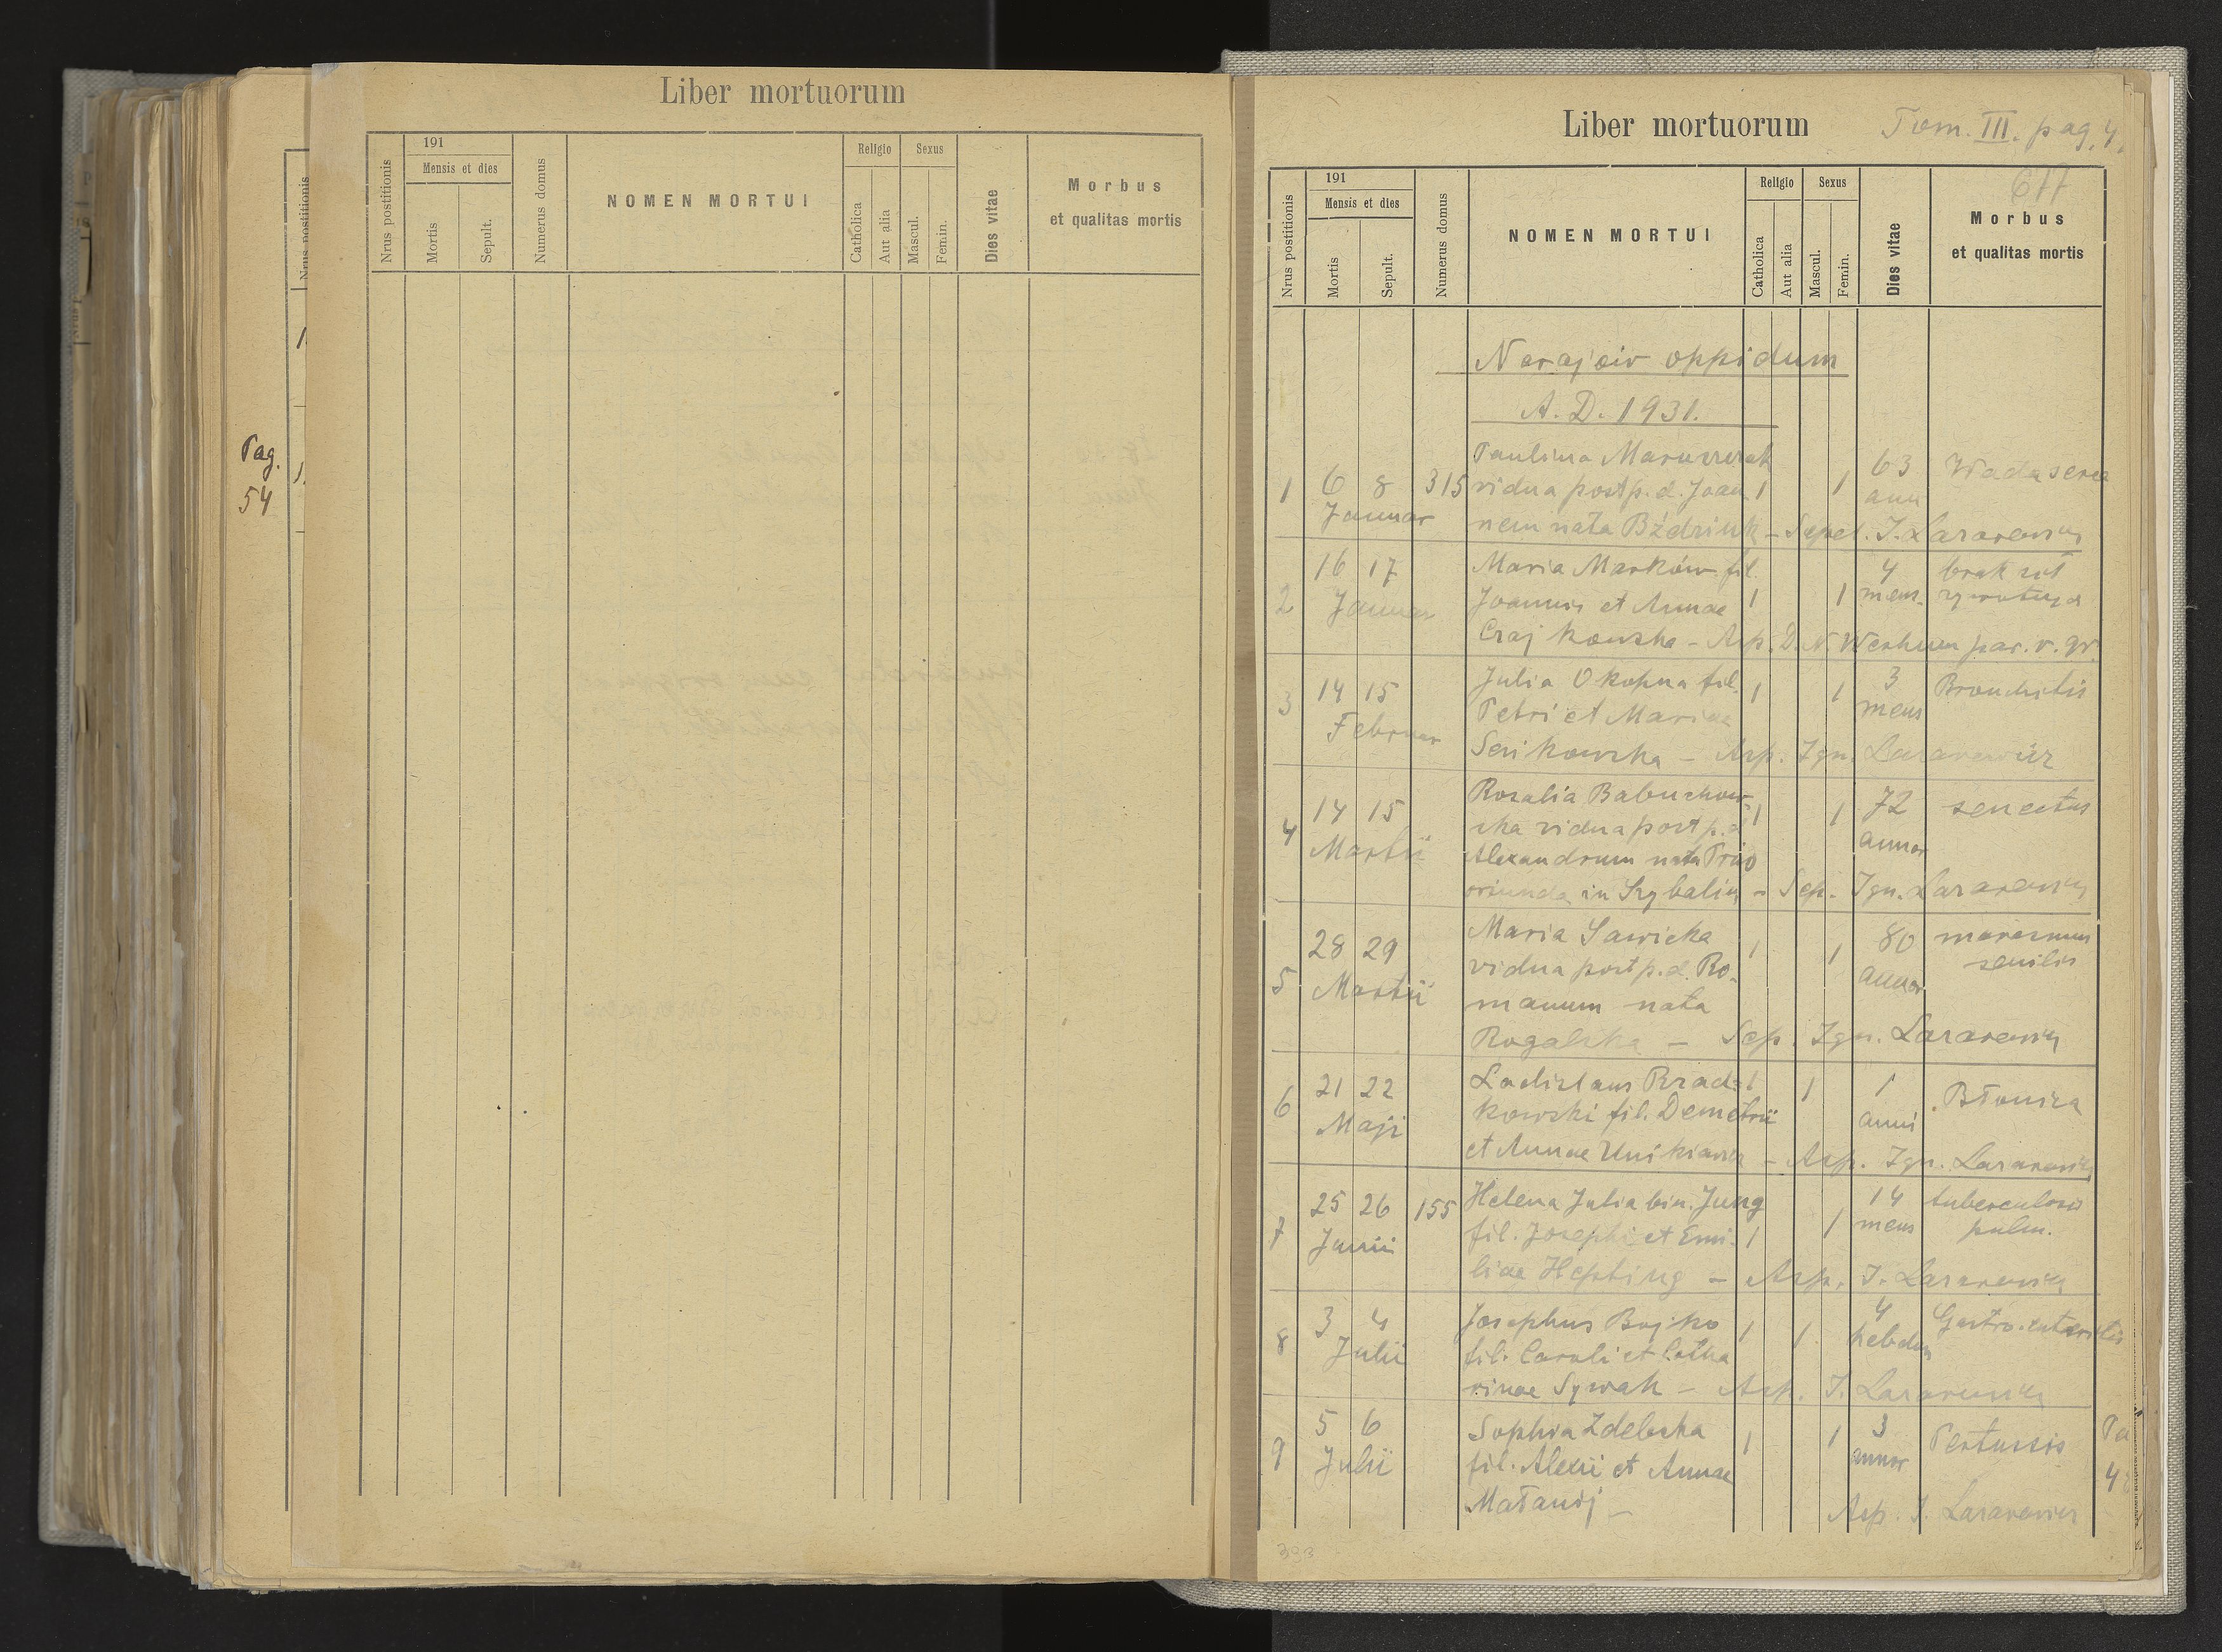 Liber mortuorum
Nrus postitionis
191
Mensis et dies
Mortis
Sepult.
Numerus domus
NOMEN MORTUI
Religio
Catholica
Aut alia
Sexus
Mascul.
Femin.
Dies vitae
Morbus
et qualitas mortis
Nrus postitionis
Pag.
54
Liber mortuorum
Tom. III. pag. 4.
677
Nrus postitionis
191
Mensis et dies
Mortis
Sepult.
Numerus domus
NOMEN MORTUI
Religio
Catholica
Aut alia
Sexus
Mascul.
Femin.
Dies vitae
Morbus
et qualitas mortis
Narajów oppidum
A. D. 1931.
Paulina 63 Wada serca
1 6 8 315 vidua post p. d. Joan 1 1 ann
Januar nem nata - Sepel. I.
16 17 Maria Marków fil. 4 brak sił
2 Januar Joannis et Annae 1 1 mens.
Czajkowska - Asp. D. N. par. r. gr.
Julia Okopna fil. 3 Bronchitis
3 14 15 Petri et Mariae 1 1 mens
Februar
Senkowska - Asp. Ign. Lazarewicz
Rozalia Babuchow-
14 15 ska vidua post p. d. 1 1 72 senectus
4 Martii Alexandrum nata annor
oriunda in - Sep. Ign. Lazarewicz
Maria Sawicka 80 marasmus
28 29 vidua post p. d. Ro- 1 1 annor senilis
5 Martii manum nata
Rogalska - Sep. Ign. Lazarewicz
21 22 Ladislaus 1 1 1
6 Maji kowski fil. Demetrii anni Błonica
et Annae - Asp. Ign. Lazarewicz
25 26 155 Helena Julia bin. Jung 14 tuberculosis
7 Junii fil. Josephi et Emi- 1 1 mens pulm.
liae Hepting - Asp. I. Lazarewicz
3 4 Josephus Bojko 1 1 4 Gastro-enteritis
8 Julii fil. Caroli et Catha hebdom
rinae Sywak - Asp. I. Lazarewicz
5 6 Sophia Zdebska 1 1 3 Pertussis
9 Julii fil. Alexii et Annae annor
Matanij - Asp. I. Lazarewicz
393